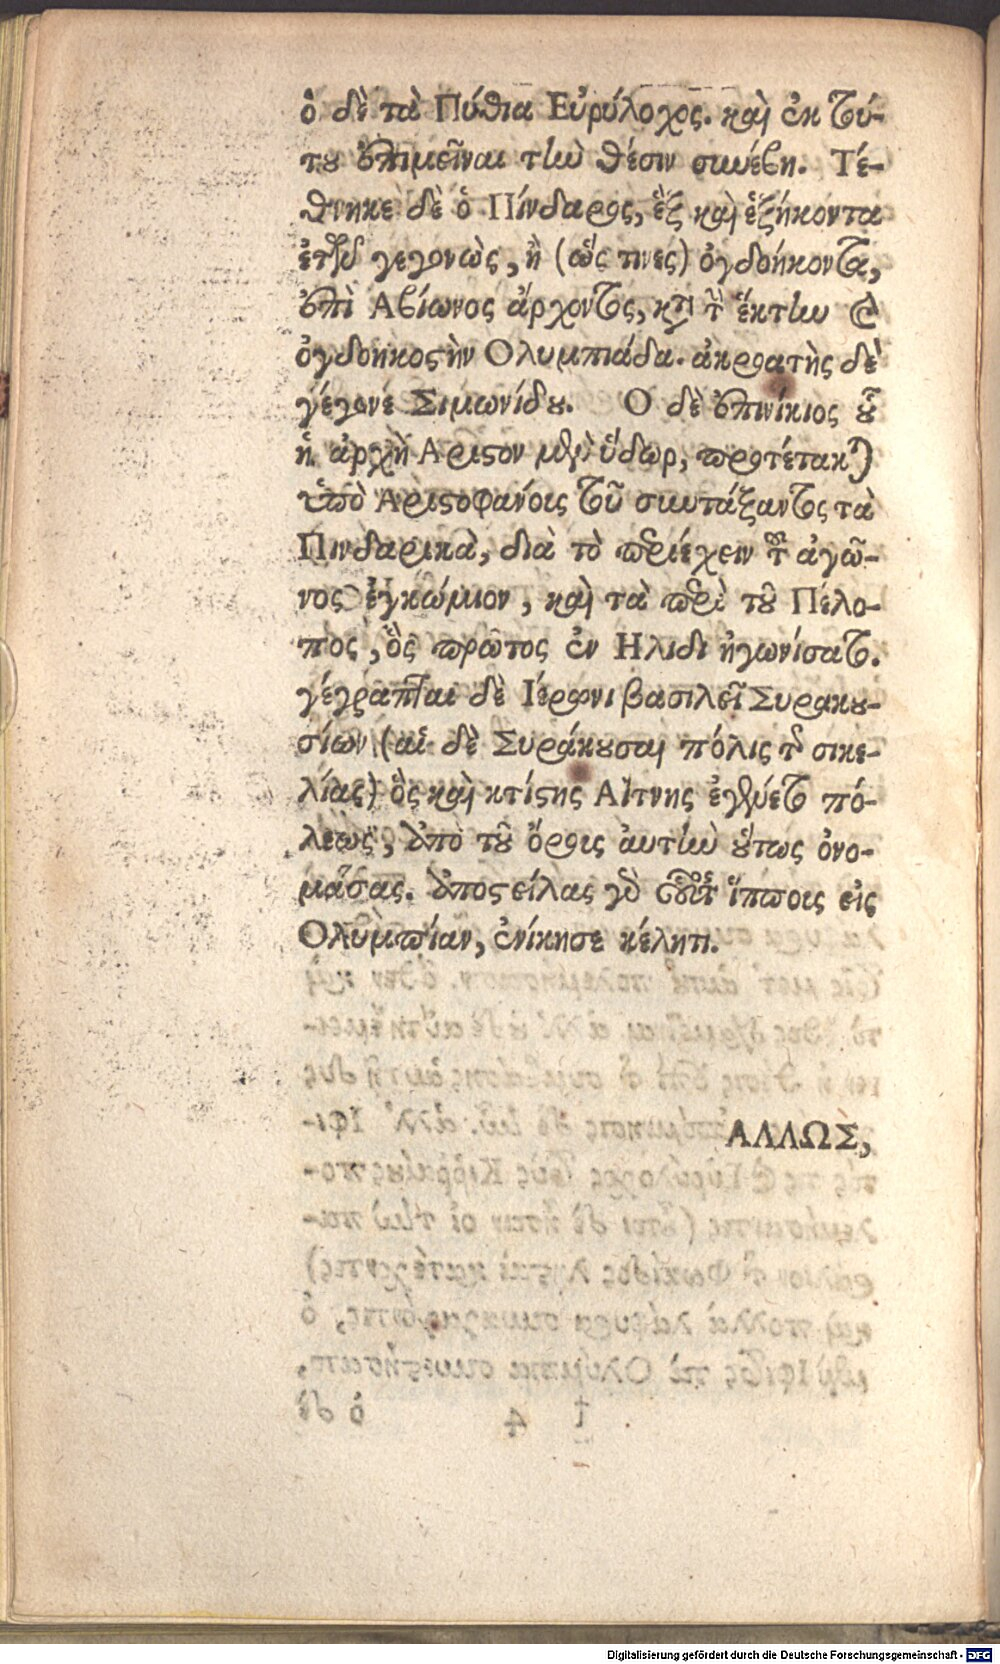 ὁ δὲ τὰ Πύθια Εὐρύλοχος. καὶ ἐκ τού-
του ἐπιμεῖναι τὴν θέσιν συνέβη. Τέ-
θνηκε δὲ ὁ Πίνδαρος, ἓξ καὶ ἑξήκοντα
ἐτῶν γεγονὼς, ἢ (ὥς τινες) ὀγδοήκοντα,
ἐπὶ Αβίωνος ἄρχοντος, κατὰ τὴν ἕκτην καὶ
ὀγδοηκοστὴν Ολυμπιάδα. ἀκροατὴς δὲ
γέγονε Σιμωνίδου. Ο δὲ ἐπινίκιος οὗ
ἡ ἀρχὴ Αριστον μὲν ὕδωρ, προτέτακται
ὑπὸ Αριστοφάνους τοῦ συντάξαντος τὰ
Πινδαρικὰ, διὰ τὸ περιέχειν τοῦ ἀγῶ-
νος ἐγκώμιον, καὶ τὰ περὶ τοῦ Πέλο-
πος, ὃς πρῶτος ἐν Ηλιδι ἠγωνίσατο.
γέγραπται δὲ Ιέρωνι βασιλεῖ Συρακου-
σίων (αἱ δὲ Συράκουσαι πόλις τῆς σικε-
λίας) ὃς καὶ κτίστης Αἴτνης ἐγένετο πό-
λεως, ἀπὸ τοῦ ὄρους αὐτὴν οὕτως ὀνο-
μάσας. ἀποστείλας γὰρ οὗτος ἵππους εἰς
Ολυμπίαν, ἐνίκησε κέλητι.
ΑΛΛΩΣ,
Digitalisierung gefördert durch die Deutsche Forschungsgemeinschaft - DFG